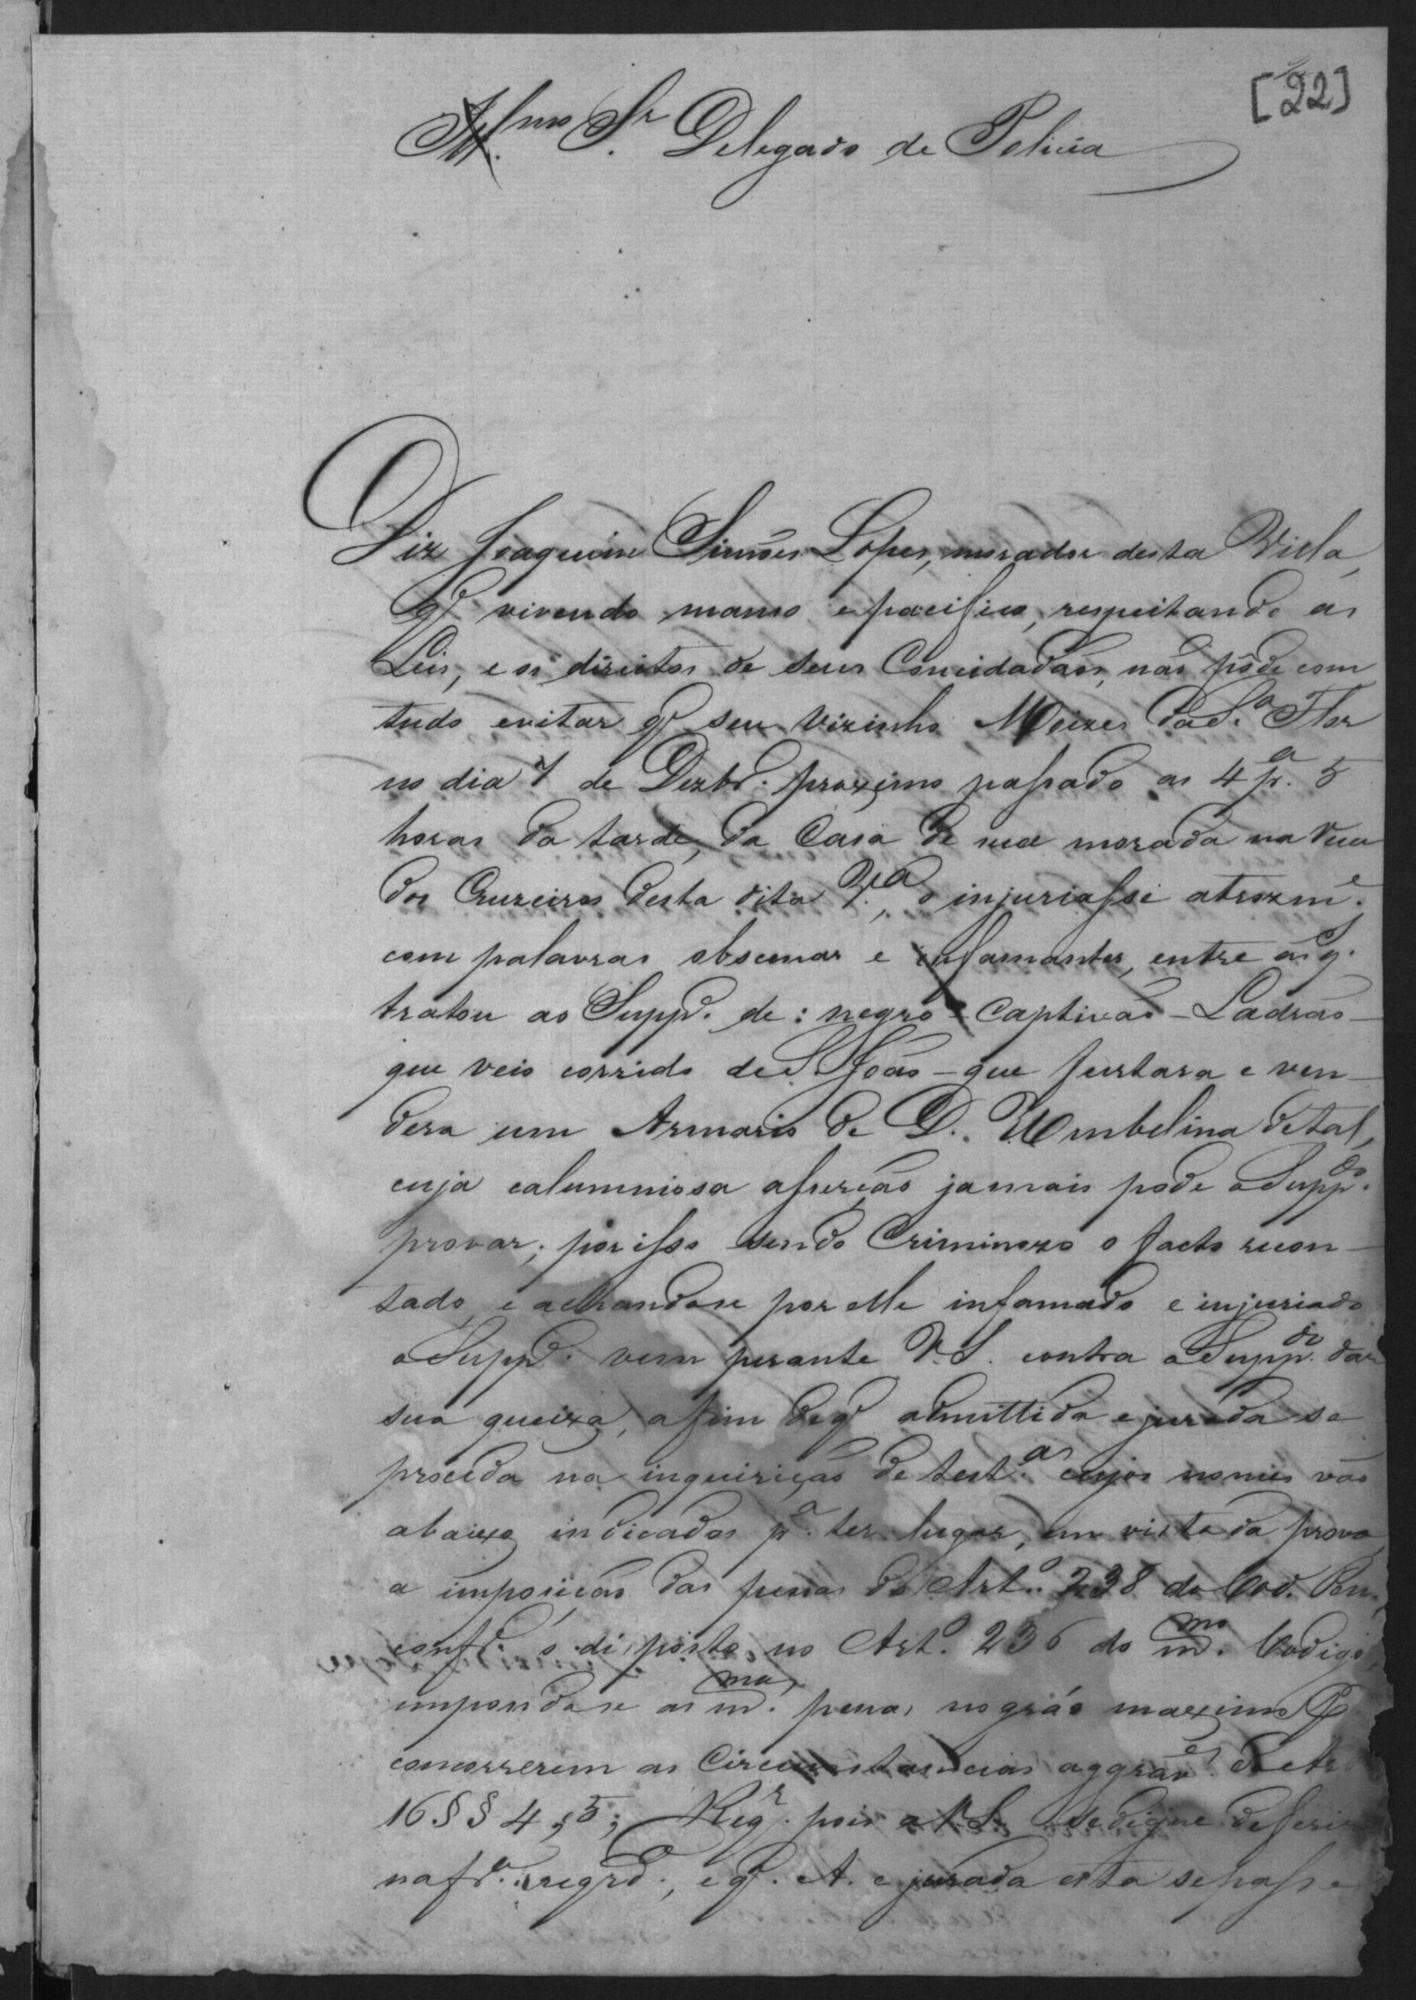 [22]
Illmo Sr. Delegado de Policia
Diz Joaquim Simões Lopes, morador desta Villa,
q' vivendo manso e pacifico, respeitando as
Leis, e os direitos de seus Concidadãos, não pôde com
tudo evitar q' seu vizinho Moizes da S.a Flor
no dia 7 de Dezbr.º proximo passado as 4 p.a 5
horas da tarde, da Casa de sua morada na Rua
dos Cruzeiros desta dita V.a, o injuriasse atrozm.e
com palavras obscenas e infamantes, entre as q.s
tratou ao Supp.e de: negro - Captivo - Ladrão -
que veio corrido de S. João - que furtara e ven-
dera um Armario de D. Umbelina de tal,
cuja calumniosa aserção jamais pode o Supp.do
provar; por isso sendo Criminozo o facto recon-
tado, e achandose por elle infamado e injuriado
o Supp.e vem perante V.S. contra o Supp.do dar
sua queixa, afim de q' admittida e jurada se
proceda na inquirição de test.as cujos nomes vão
abaixo indicados p.a ter lugar, em vista da prova,
a imposição das penas do Art.º 238 do Cod. Pen.,
conf.e o disposto no Art.º 236 do m.mo Codigo,
impondose as m.mas penas no gráo maximo p.r
concorrerem as Circunstancias aggrav.es do Art
16 §§ 4, 5; Req.r pois a V.S. se digne deferir
na f.a reqrd.a, e q'. A. e jurada esta se passe